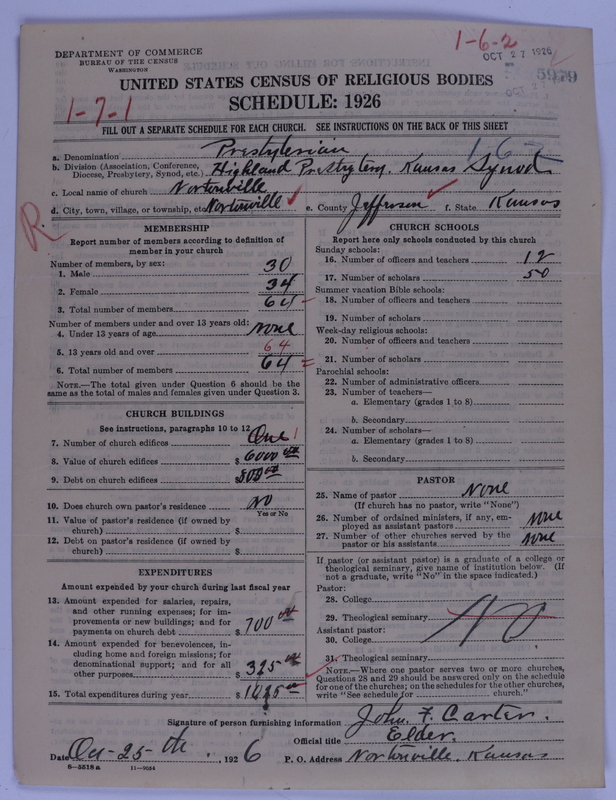 DEPARTMENT OF COMMERCE
BUREAU OF THE CENSUS
WASHINGTON
1-6-2
OCT 27 1926
5979
UNITED STATES CENSUS OF RELIGIOUS BODIES
SCHEDULE: 1926
1-7-1
FILL OUT A SEPARATE SCHEDULE FOR EACH CHURCH. SEE INSTRUCTIONS ON THE BACK OF THIS SHEET
a. Denomination Presbyterian
b. Division (Association, Conference, Diocese, Presbytery, Synod, etc.) Highland Presbytery, Kansas Synod
c. Local name of church Nortonville
d. City, town, village, or township, etc. Nortonville e. County Jefferson f. State Kansas
R
MEMBERSHIP
Report number of members according to definition of
member in your church
Number of members, by sex:
1. Male 30
2. Female 34
3. Total number of members 64
Number of members under and over 13 years old:
4. Under 13 years of age None
5. 13 years old and over 64
6. Total number of members 64
NOTE.—The total given under Question 6 should be
same as the total of males and females given under Question 3.
CHURCH BUILDINGS
See instructions, paragraphs 10 to 12
7. Number of church edifices One 1
8. Value of church edifices $ 6000 00
9. Debt on church edifices $ 500 00
10. Does church own pastor's residence no
Yes or No
11. Value of pastor's residence (if owned by
church) $
12. Debt on pastor's residence (if owned by
church) $
EXPENDITURES
Amount expended by your church during last fiscal year
13. Amount expended for salaries, repairs,
and other running expenses; for im-
provements or new buildings; and for
payments on church debt $ 700 00
14. Amount expended for benevolences, in-
cluding home and foreign missions; for
denominational support; and for all
other purposes $ 325 00
15. Total expenditures during year $
CHURCH SCHOOLS
Report here only schools conducted by this church
Sunday schools:
16. Number of officers and teachers 12
17. Number of scholars 50
Summer vacation Bible schools:
18. Number of officers and teachers
19. Number of scholars
Week-day religious schools:
20. Number of officers and teachers
21. Number of scholars
Parochial schools:
22. Number of administrative officers
23. Number of teachers—
a. Elementary (grades 1 to 8)
b. Secondary
24. Number of scholars—
a. Elementary (grades 1 to 8)
b. Secondary
PASTOR
25. Name of pastor None
(If church has no pastor, write "None")
26. Number of ordained ministers, if any, em-
ployed as assistant pastors none
27. Number of other churches served by the
pastor or his assistants none
If pastor (or assistant pastor) is a graduate of a college or
theological seminary, give name of institution below. (If
not a graduate, write "No" in the space indicated.)
Pastor:
28. College
29. Theological seminary No
Assistant pastor:
30. College
31. Theological seminary
NOTE.—Where one pastor serves two or more churches,
Questions 28 and 29 should be answered only on the schedule
for one of the churches; on the schedules for the other churches,
write "See schedule for church."
Signature of person furnishing information John F. Carter
Official title Elder.
Date Oct-25-th, 1926 P. O. Address Nortonville, Kansas
8-5518a 11-9054